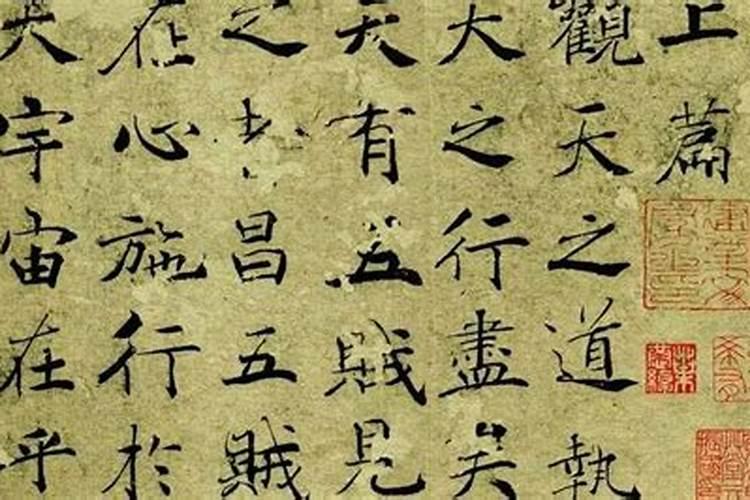 上篇
觀天之道執
天之行盡矣
天有五賊見
之者昌五賊
在心施行於
天宇宙在乎